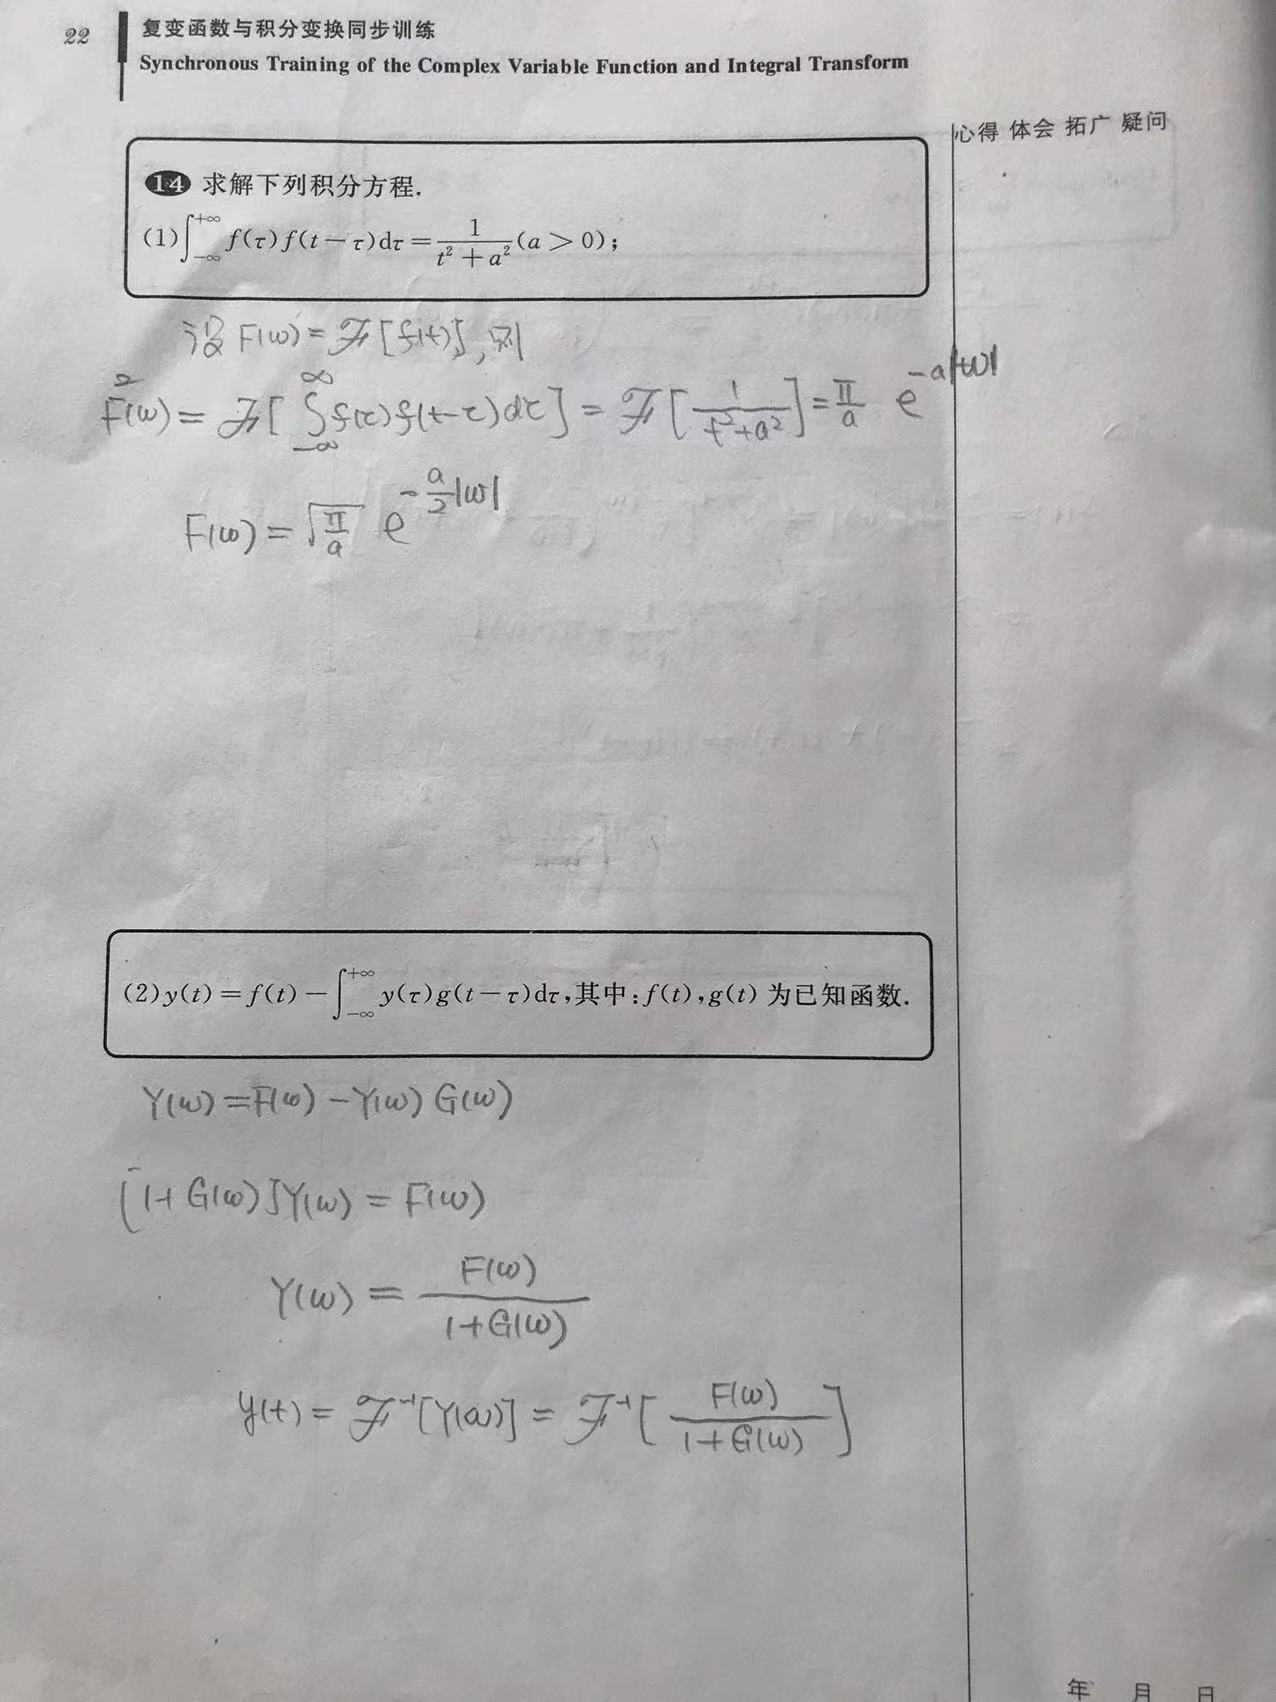 22
复变函数与积分变换同步训练
Synchronous Training of the Complex Variable Function and Integral Transform
心得 体会 拓广 疑问
14 求解下列积分方程.
(1)∫_{-∞}^{+∞} f(τ)f(t-τ)dτ = 1/(t²+a²) (a>0);
设 F(ω)=ℱ[f(t)],则
F²(ω)=ℱ[∫_{-∞}^{∞} f(τ)f(t-τ)dτ]=ℱ[1/(t²+a²)]=π/a e^{-a|ω|}
F(ω)=√(π/a) e^{-a/2|ω|}
(2)y(t)=f(t)-∫_{-∞}^{+∞} y(τ)g(t-τ)dτ,其中:f(t),g(t)为已知函数.
Y(ω)=F(ω)-Y(ω)G(ω)
[1+G(ω)]Y(ω)=F(ω)
Y(ω)=F(ω)/(1+G(ω))
y(t)=ℱ⁻¹[Y(ω)]=ℱ⁻¹[F(ω)/(1+G(ω))]
年 月 日